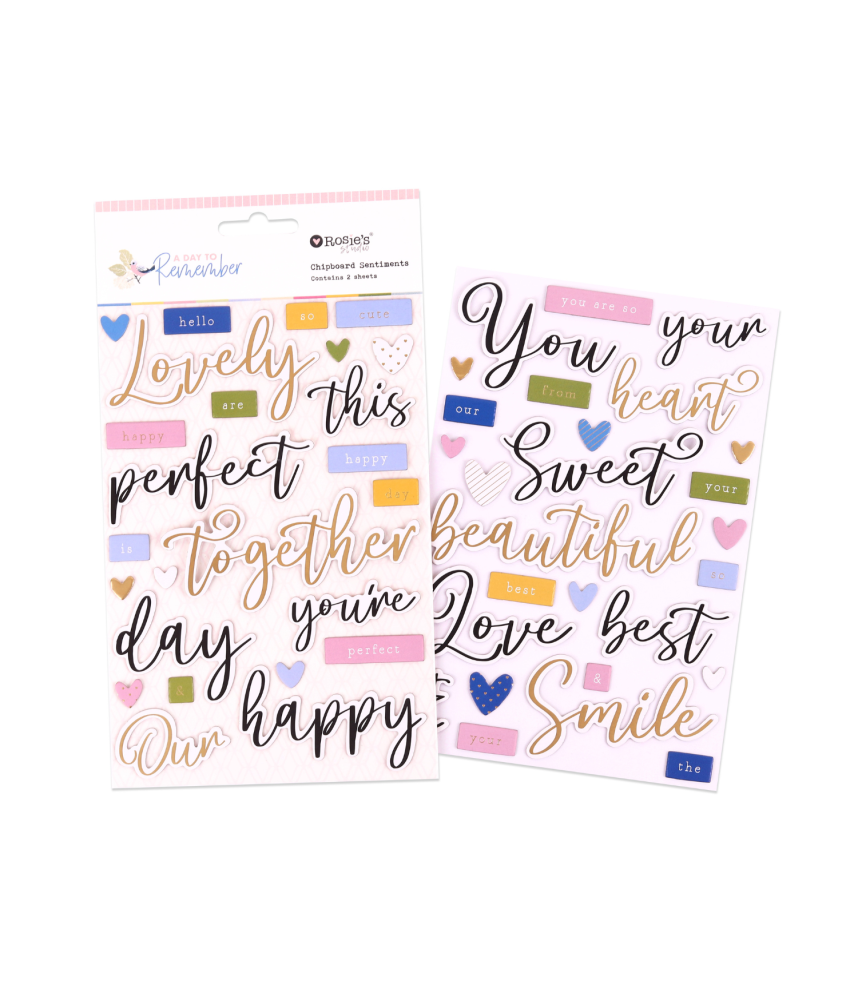 A DAY TO
Remember
Rosie's
Studio
Chipboard Sentiments
Contains 2 sheets
hello
so
cute
Lovely
are
this
happy
perfect
happy
day
is
together
you're
day
perfect
&
happy
Our
you are so
You
your
from
heart
our
Sweet
your
beautiful
so
best
Love
best
&
Smile
your
the